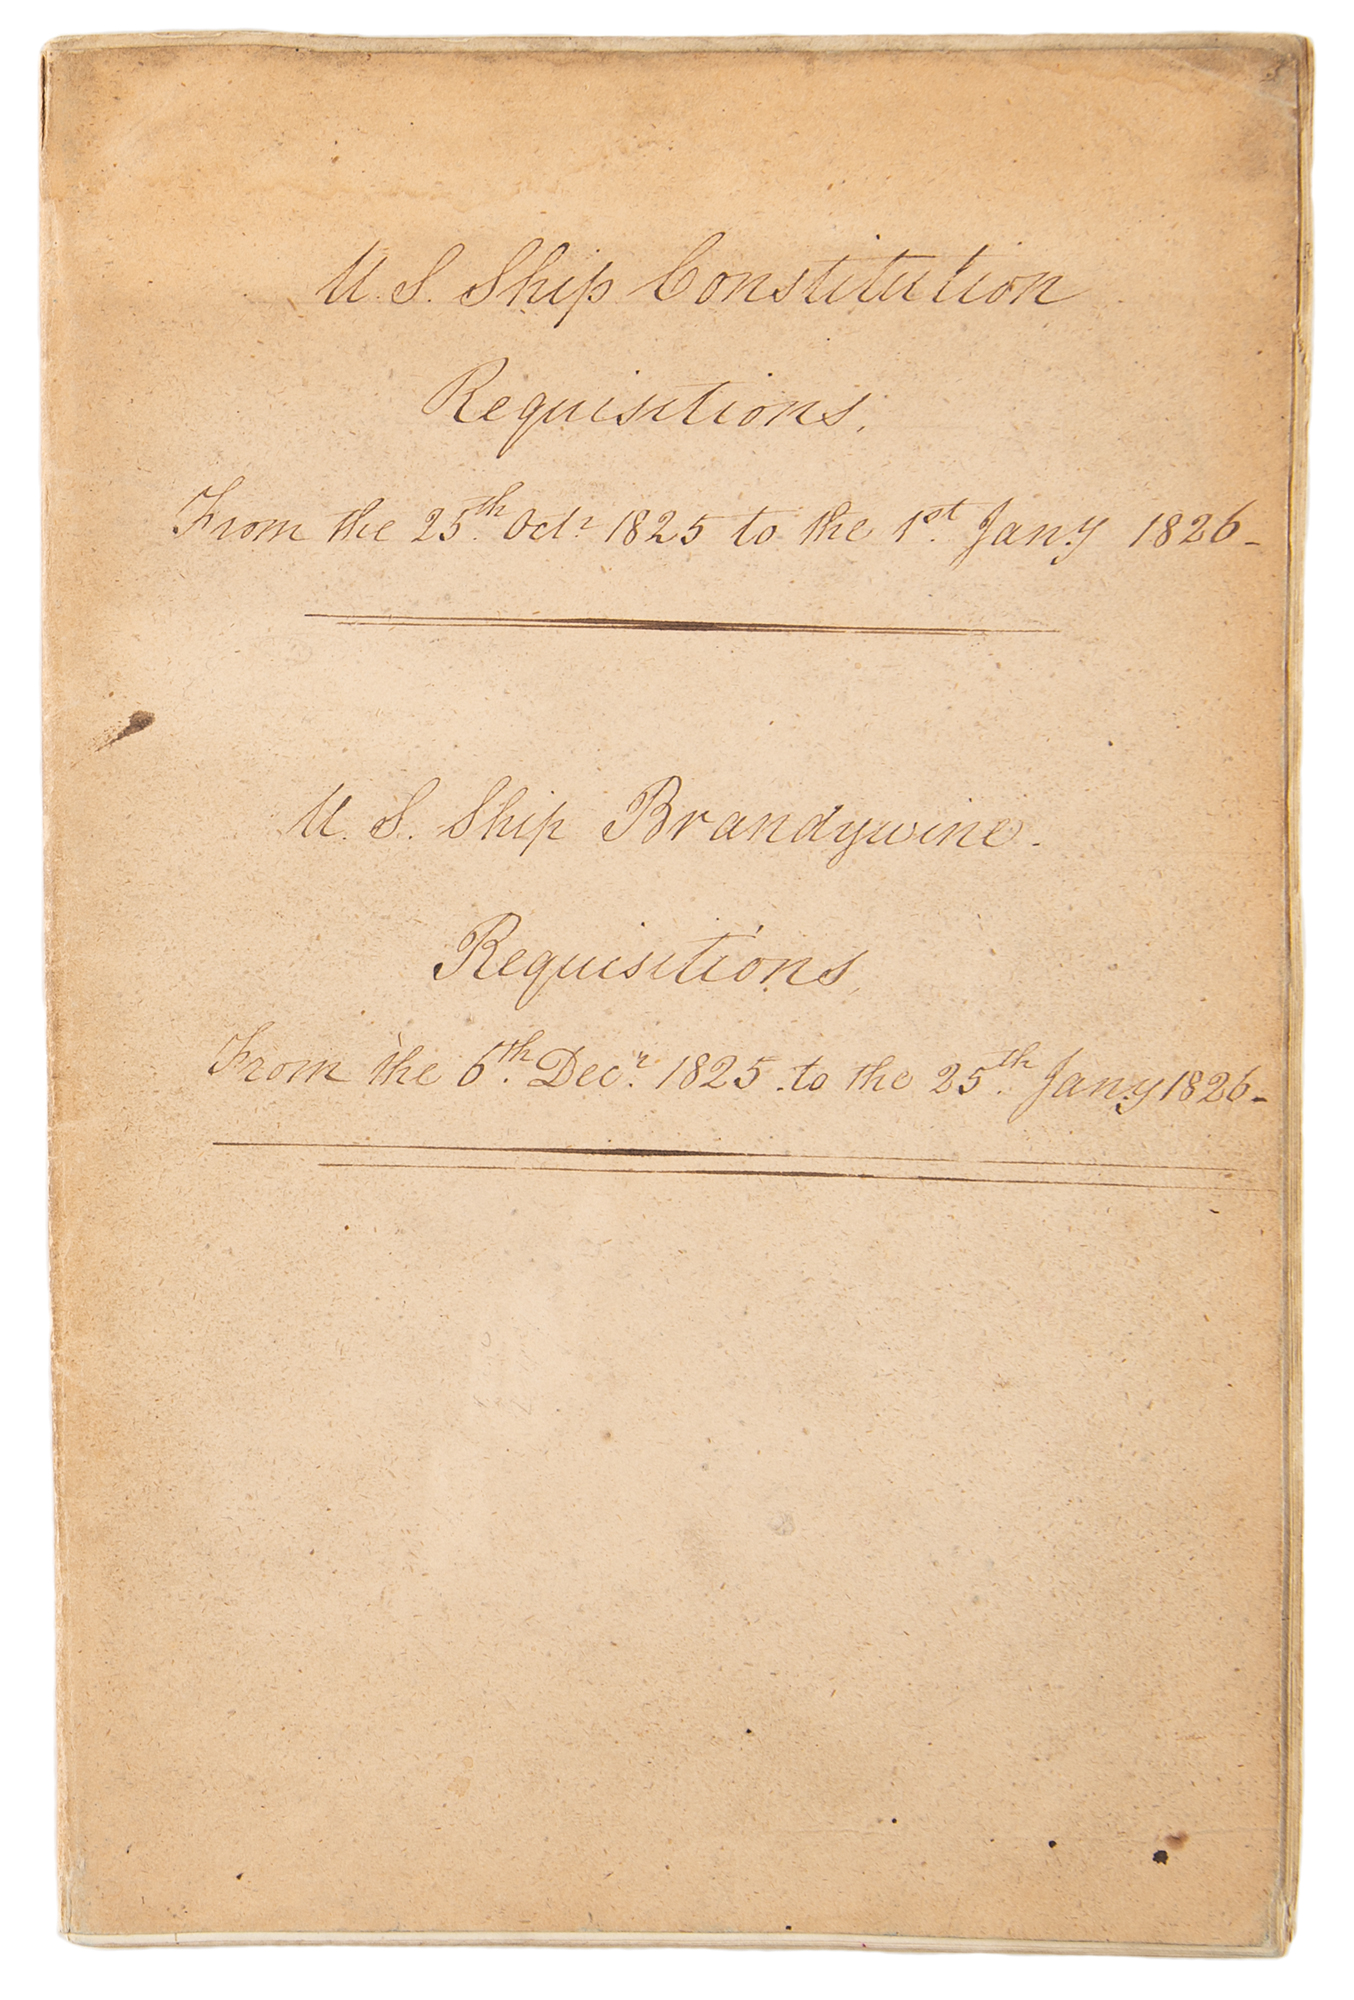 U. S. Ship Constitution
Requisitions.
From the 25th Octr 1825 to the 1st Jany 1826-
U. S. Ship Brandywine.
Requisitions,
From the 6th Decr 1825 to the 25th Jany 1826-